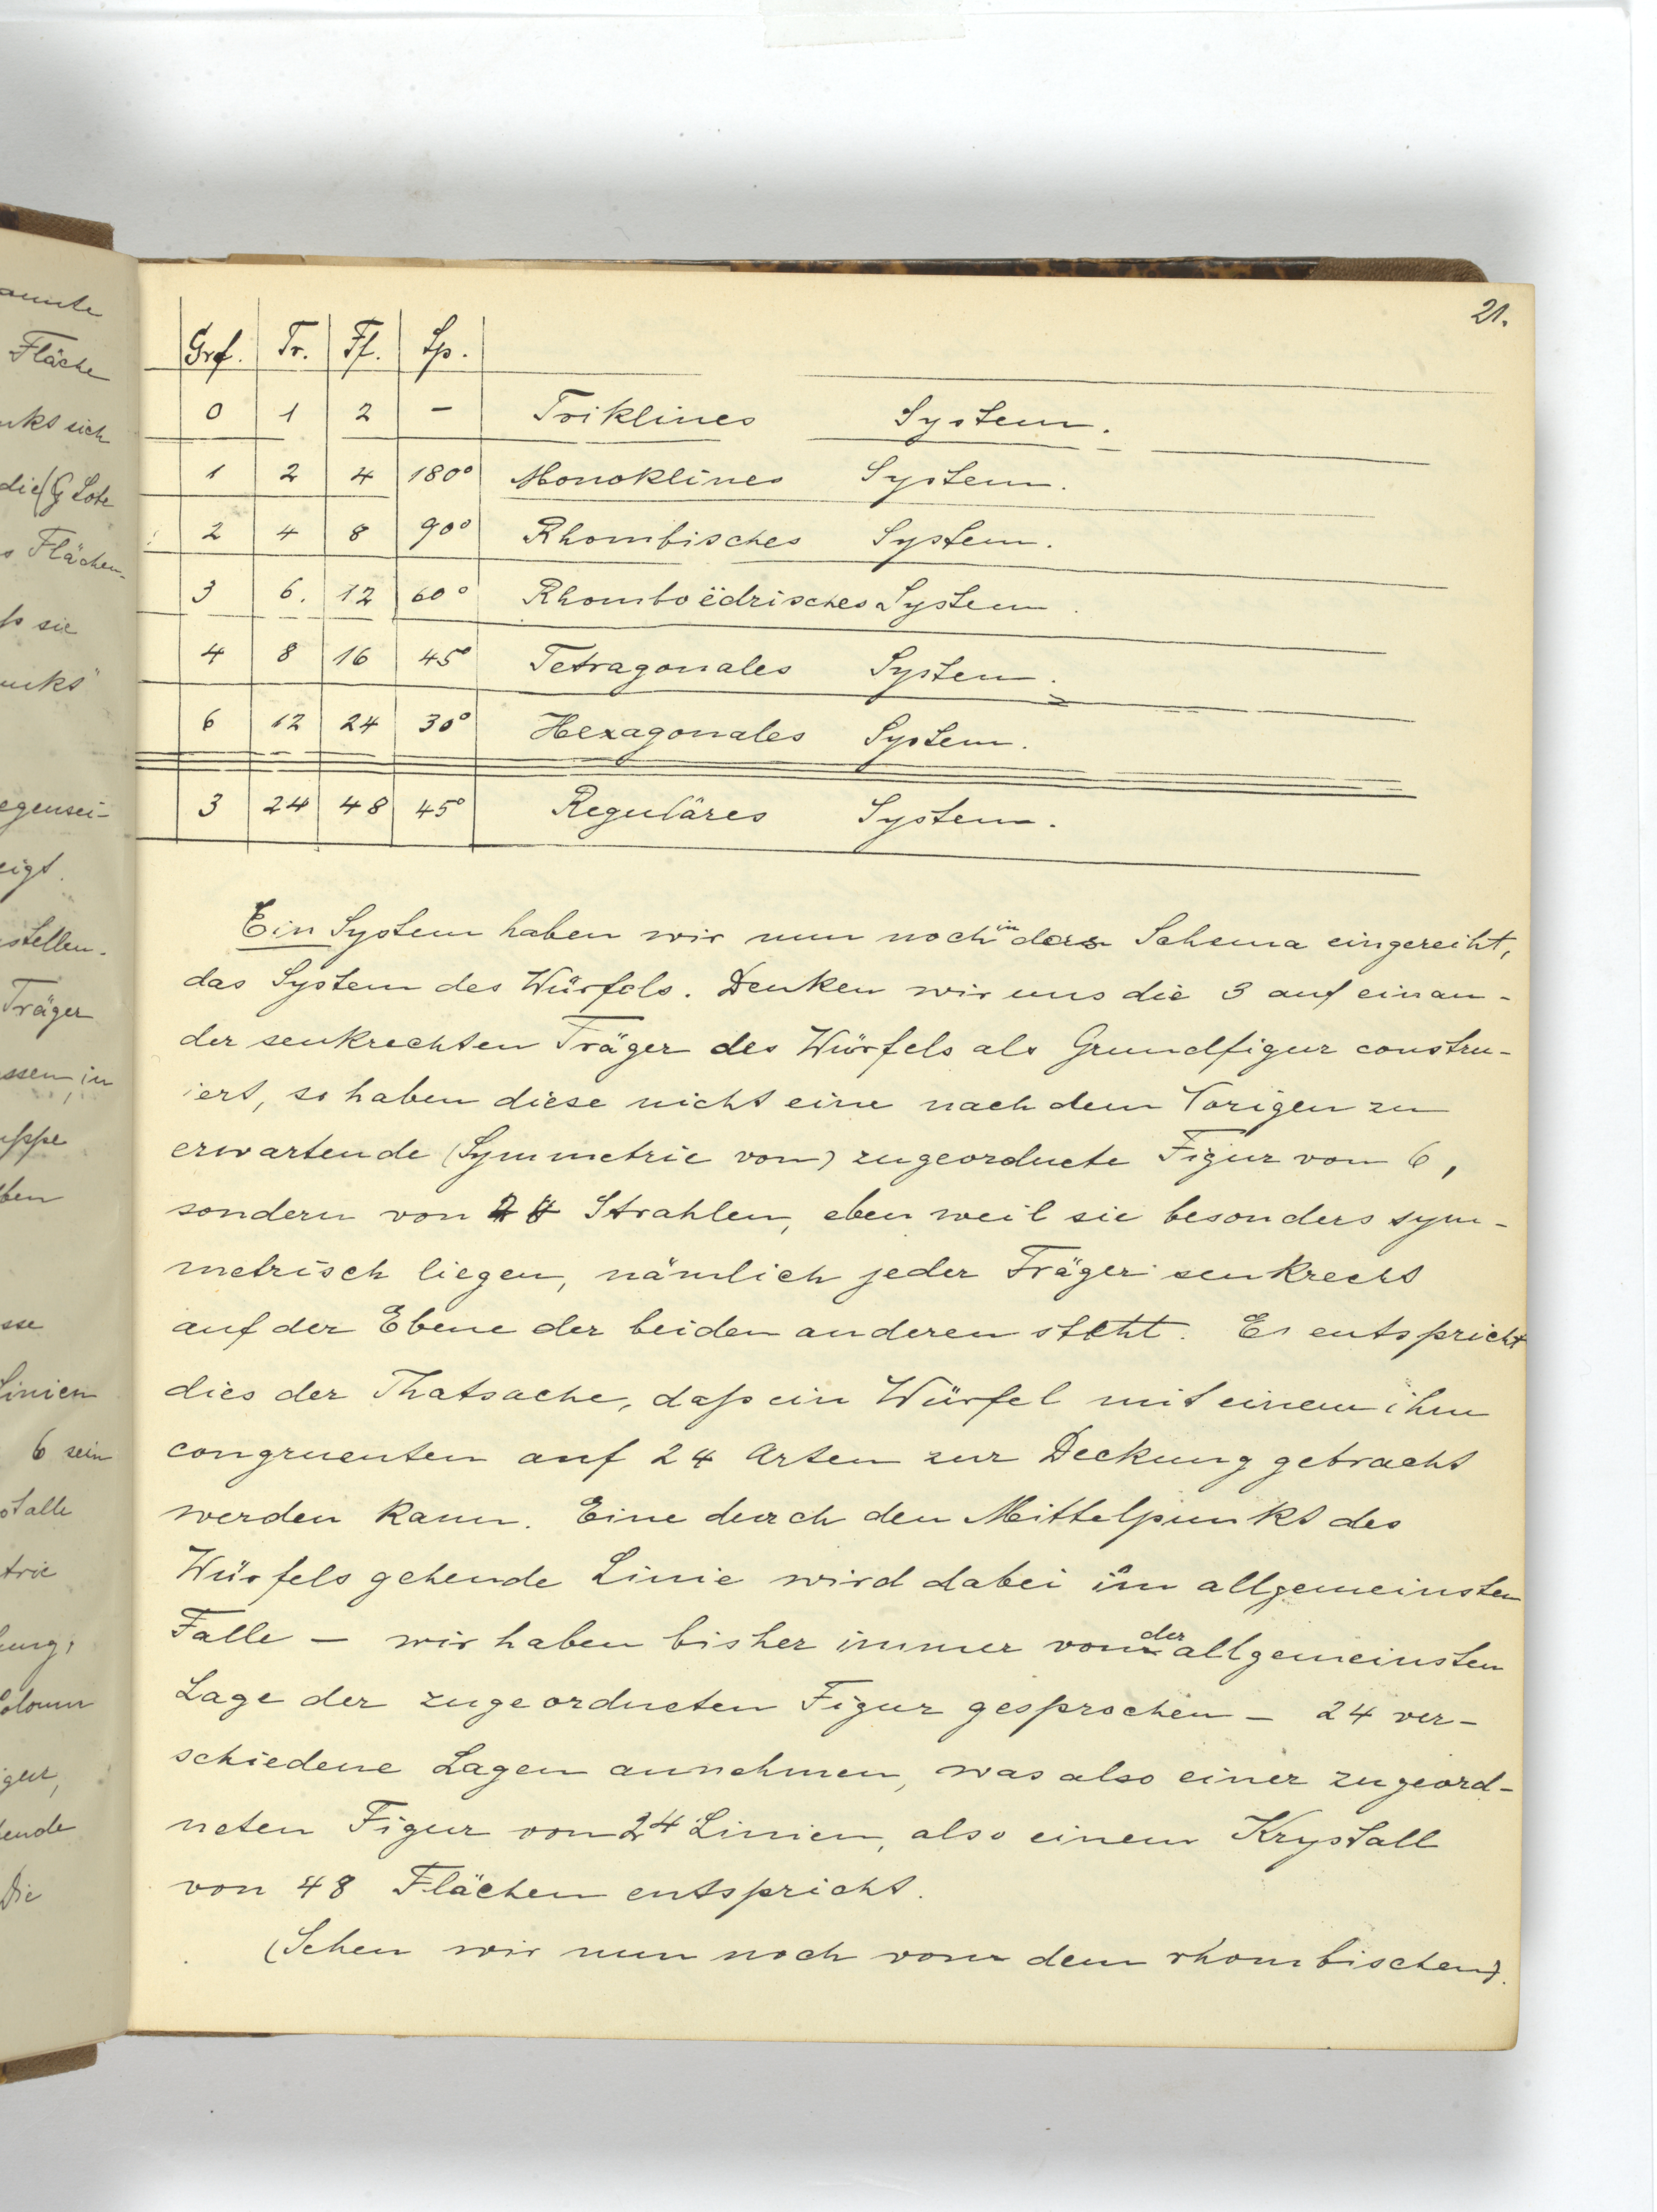 21.
Grf. Tr. Ff. Sp.
0 1 2 – Triklines System.
1 2 4 180° Monoklines System.
2 4 8 90° Rhombisches System.
3 6. 12 60° Rhomboëdrisches System.
4 8 16 45° Tetragonales System.
6 12 24 30° Hexagonales System.
3 24 48 45° Reguläres System.
Ein System haben wir nun noch in das Schema eingereiht,
das System des Würfels. Denken wir uns die 3 auf einan-
der senkrechten Träger des Würfels als Grundfigur constru-
iert, so haben diese nicht eine nach dem Vorigen zu
erwartende (Symmetrie von) zugeordnete Figur von 6,
sondern von Strahlen, eben weil sie besonders sym-
metrisch liegen, nämlich jeder Träger senkrecht
auf der Ebene der beiden anderen steht. Es entspricht
dies der Thatsache, daß ein Würfel mit einem ihm
congruenten auf 24 Arten zur Deckung gebracht
werden kann. Eine durch den Mittelpunkt des
Würfels gehende Linie wird dabei im allgemeinsten
Falle – wir haben bisher immer von der allgemeinsten
Lage der zugeordneten Figur gesprochen – 24 ver-
schiedene Lagen annehmen, was also einer zugeord-
neten Figur von 24 Linien, also einem Krystall
von 48 Flächen entspricht.
(Sehen wir nun noch von dem rhombischen).
Fläche
die (G Lote
Flächen-
sie
egensei-
eigt.
stellen.
Träger
ssen, in
ben
Linien
6 sein
Die